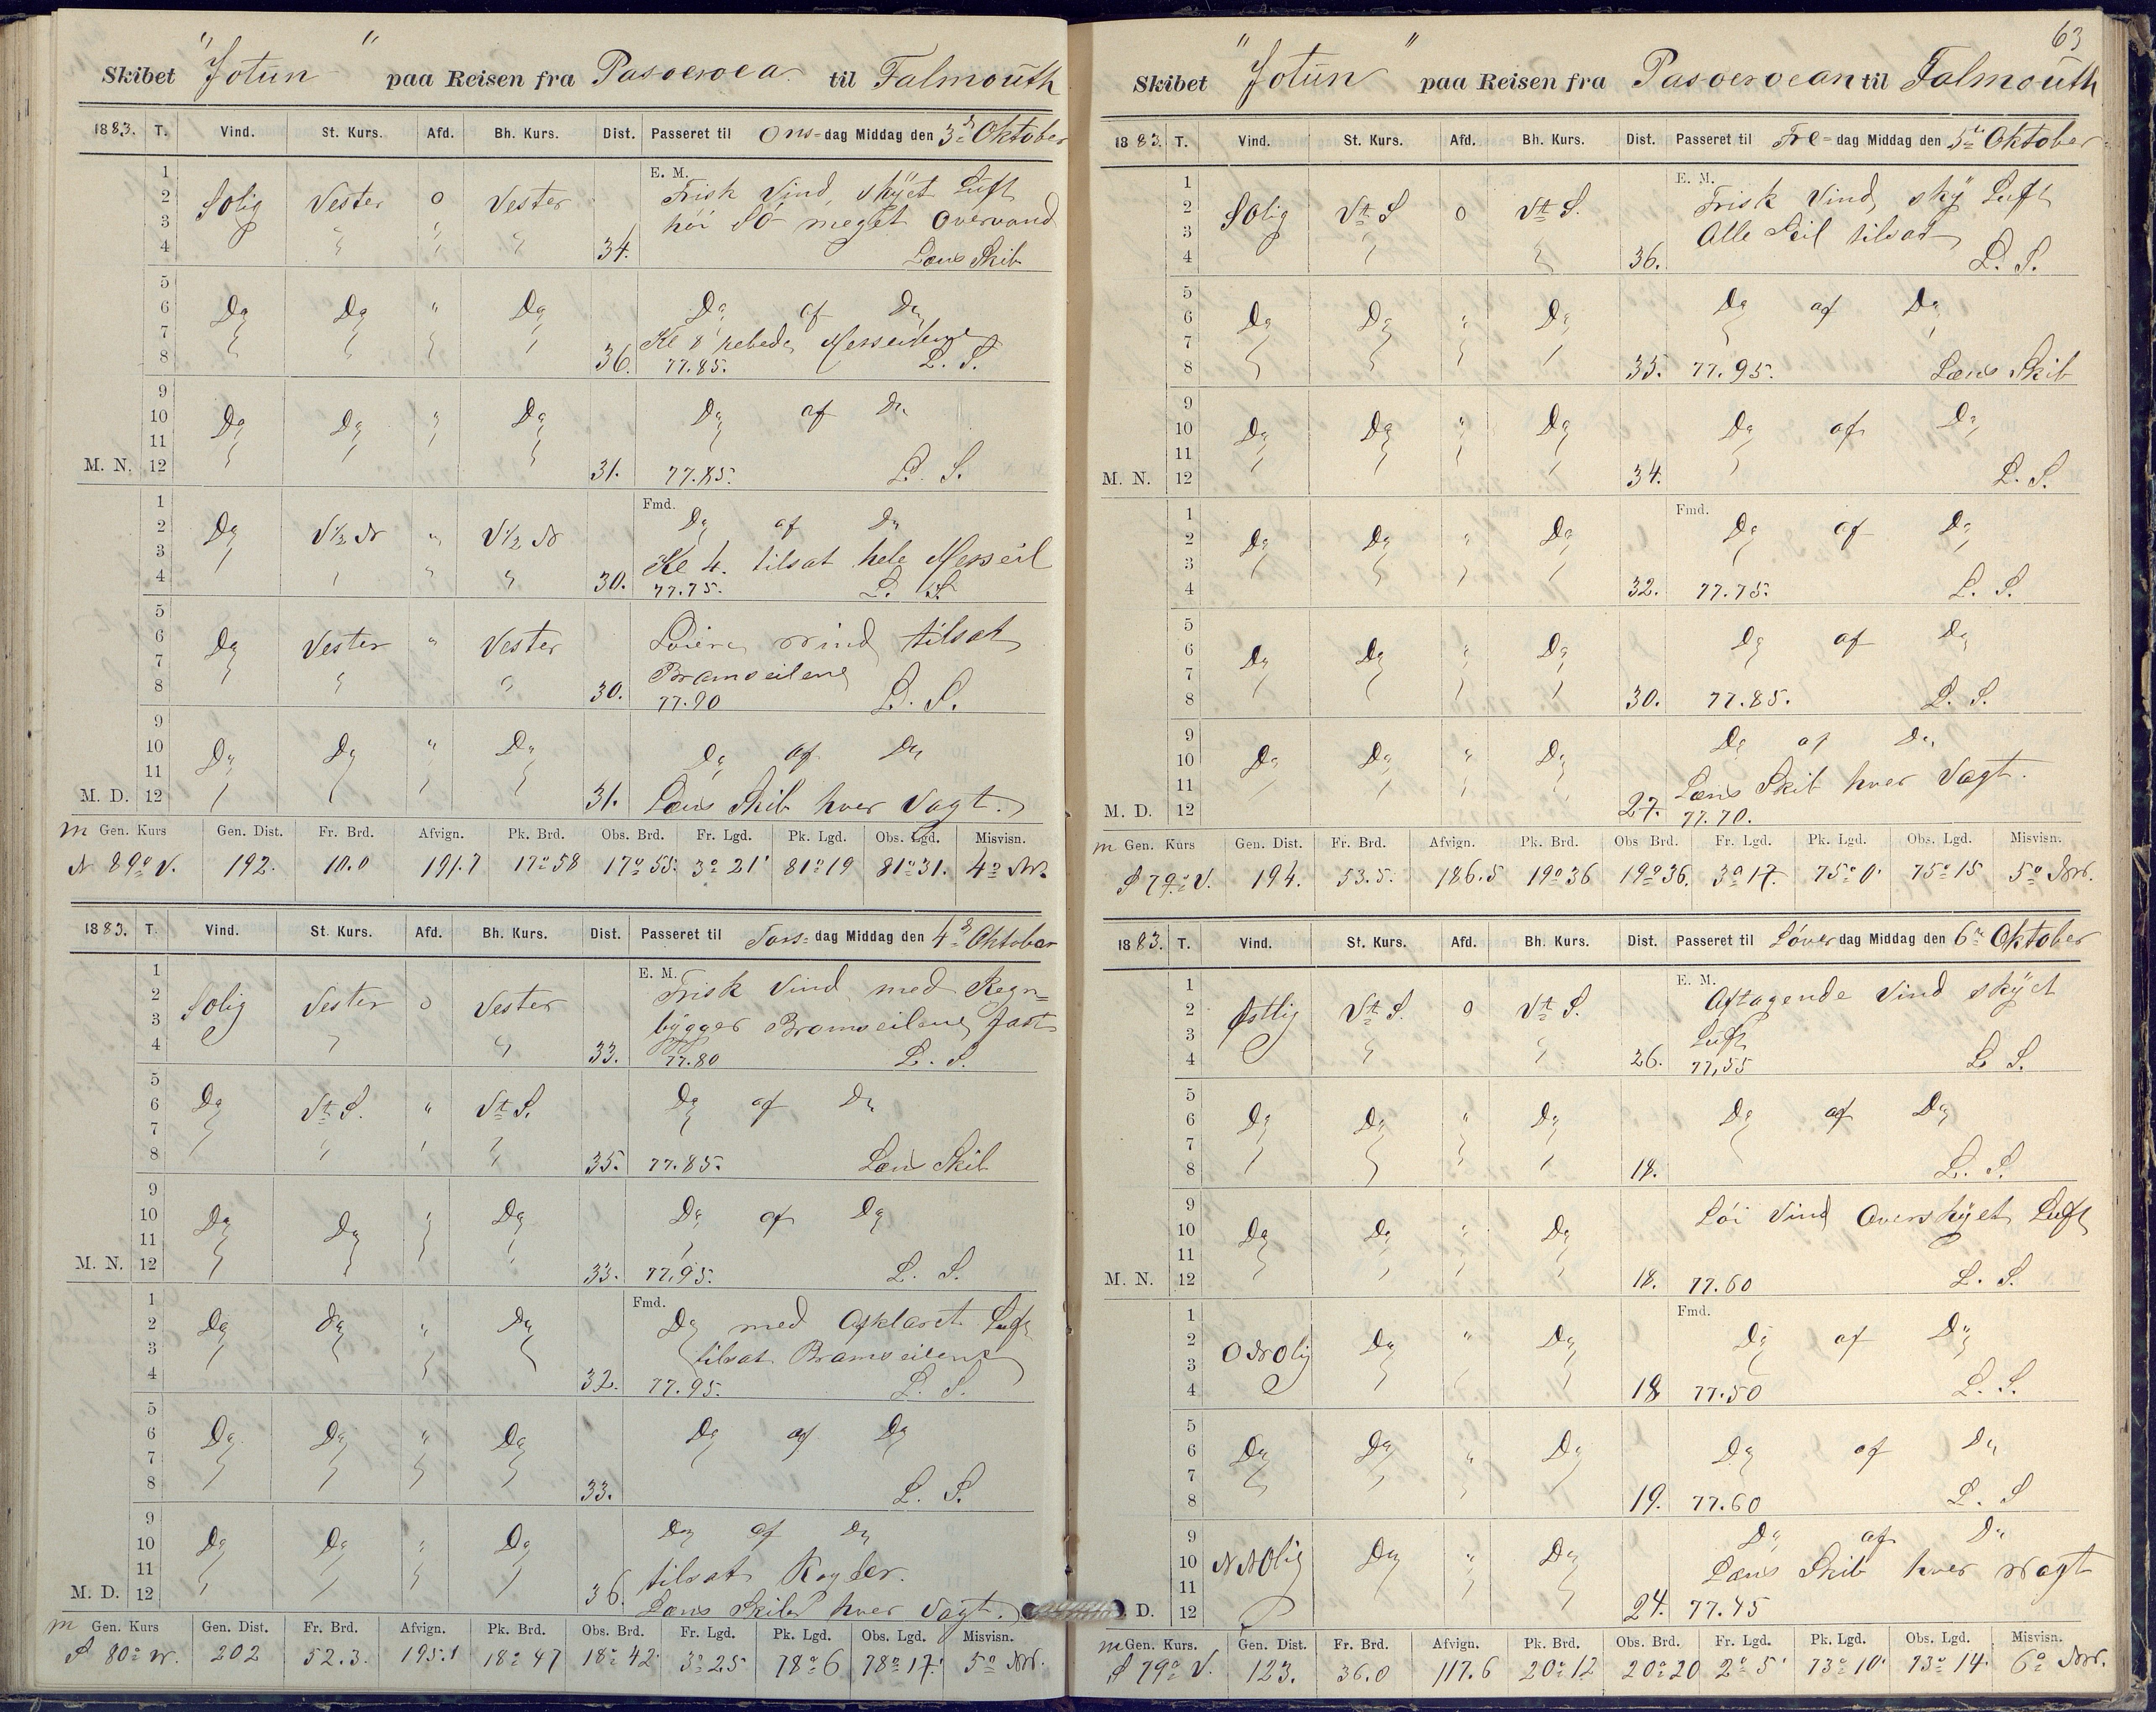 Skibet "Jotun" paa Reisen fra Pasoeroea til Falmouth
1883. T. Vind. St. Kurs. Afd. Bh. Kurs. Dist. Passeret til Ons-dag Middag den 3d Oktober
E. M.
1 2 3 4 SOlig Vester 0 Vester 34. Frisk Vind, skÿet Luft
høi SØ meget Overvand
Læns Skib
5 6 7 8 Do Do " Do 36. Do af Do
Kl 8 rebede Merseilene
77.85. L. S.
9 10 11 12 M. N. Do Do " Do 31. Do af Do
77.85. L. S.
Fmd.
1 2 3 4 Do V½N " V½N 30. Do af Do
Kl 4. tilsat hele Merseil
77.75. L. S.
5 6 7 8 Do Vester " Vester 30. Løiere Vind tilsat
Bramseilene
77.90 L. S.
9 10 11 12 M. D. Do Do " Do 31. Do af Do
Læns Skib hver Vagt.
m Gen. Kurs Gen. Dist. Fr. Brd. Afvign. Pk. Brd. Obs. Brd. Fr. Lgd. Pk. Lgd. Obs. Lgd. Misvisn.
N 89° V. 192. 10.0 191.7 17°58 17°55. 3°21' 81°19 81°31. 4° NV.
1883. T. Vind. St. Kurs. Afd. Bh. Kurs. Dist. Passeret til Tors-dag Middag den 4d Oktober
E. M.
1 2 3 4 SOlig Vester 0 Vester 33. Frisk Vind med Regn=
bÿgger Bramseilene fast
77.80 L. S.
5 6 7 8 Do VtS. " VtS. 35. Do af Do
77.85. Læns Skib
9 10 11 12 M. N. Do Do " Do 33. Do af Do
77.95. L. S.
Fmd.
1 2 3 4 Do Do " Do 32. Do med Opklaret Luft
tilsat Bramseilene
77.95. L. S.
5 6 7 8 Do Do " Do 33. Do af Do
L. S.
9 10 11 12 M. D. Do Do " Do 36. Do af Do
tilsat Røyler.
Læns Skib hver Vagt.
m Gen. Kurs Gen. Dist. Fr. Brd. Afvign. Pk. Brd. Obs. Brd. Fr. Lgd. Pk. Lgd. Obs. Lgd. Misvisn.
S 80° V. 202 52.3. 195.1 18°47 18°42 3°25 78°6 78°17' 5° NV.
63
Skibet "Jotun" paa Reisen fra Pasoeroean til Falmouth
1883. T. Vind. St. Kurs. Afd. Bh. Kurs. Dist. Passeret til Fre-dag Middag den 5te Oktober
E. M.
1 2 3 4 SOlig VtS 0 VtS. 36. Frisk Vind, skÿ Luft
Alle Seil tilsat
L. S.
5 6 7 8 Do Do " Do 35. Do af Do
77.95. Læns Skib
9 10 11 12 M. N. Do Do " Do 34. Do af Do
L. S.
Fmd.
1 2 3 4 Do Do " Do 32. Do af Do
77.75. L. S.
5 6 7 8 Do Do " Do 30. Do af Do
77.85. L. S.
9 10 11 12 M. D. Do Do " Do 27. Do af Do
Læns Skib hver Vagt.
77.70.
m Gen. Kurs Gen. Dist. Fr. Brd. Afvign. Pk. Brd. Obs Brd. Fr. Lgd. Pk. Lgd. Obs. Lgd. Misvisn.
S 79° V. 194. 53.5. 186.5 19°36 19°36. 3°17. 75°0' 75°15 5° NV.
1883. T. Vind. St. Kurs. Afd. Bh. Kurs. Dist. Passeret til Løverdag Middag den 6te Oktober
E. M.
1 2 3 4 Østlig VtS. 0 VtS. 26. Aftagende Vind skÿet
Luft
77,55 L S.
5 6 7 8 Do Do " Do 18. Do af Do
L. S.
9 10 11 12 M. N. Do Do " Do 18. Løi Vind Overskÿet Luft
77.60 L. S.
Fmd.
1 2 3 4 ONOlig Do " Do 18 Do af Do
77.50 L. S.
5 6 7 8 Do Do " Do 19. Do af Do
77.60 L. S
9 10 11 12 D. NNOlig Do " Do 24. Do af Do
Læns Skib hver Vagt
77.45
m Gen. Kurs. Gen. Dist. Fr. Brd. Afvign. Pk. Brd. Obs. Brd. Fr. Lgd. Pk. Lgd. Obs. Lgd. Misvisn.
S 79° V. 123. 36.0 117.6 20°12 20°20 2°5' 73°10' 73°14. 6° NV.